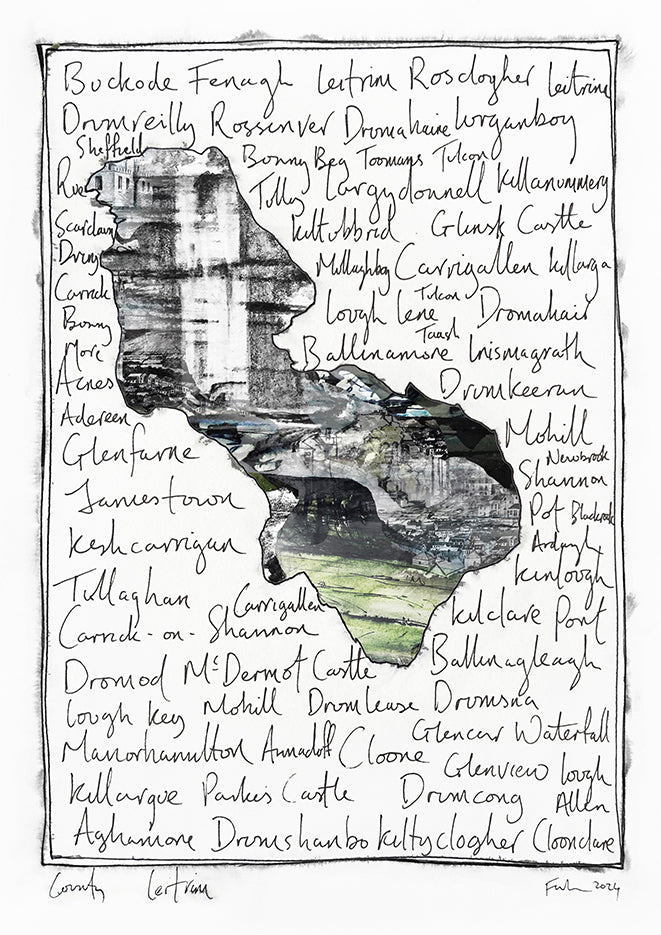 Buckode Fenagh Leitrim Rosclogher Leitrim
Drumreilly Rossinver Dromahaire Lurganboy
Sheffield Bonny Beg Toomans Tulcon
Tully Largydonnell Killanummery
Scardaun Kiltubbrid Glinsk Castle
Druny Mullaghboy Carrigallen Killarga
Carrick Lough Rene Tulcon Dromahair
Bonny Taash
More Ballinamore Inismagrath
Acres Drumkeeran
Adereen Mohill
Glenfarne Newbrook
Shannon
Jamestown Port Blackrock
Keshcarrigan Ardaghy
Kinlough
Tullaghan Carrigallen Kilclare Port
Carrick-on-Shannon
Dromod McDermot Castle Ballinagleagh
Lough Key Mohill Drumlease Drumsna
Glencar Waterfall
Manorhamilton Annaduff Cloone
Glenview Lough
Killargue Parkes Castle Drumcong Allen
Aghamore Drumshanbo Kiltyclogher Cloonclare
County Leitrim 2024